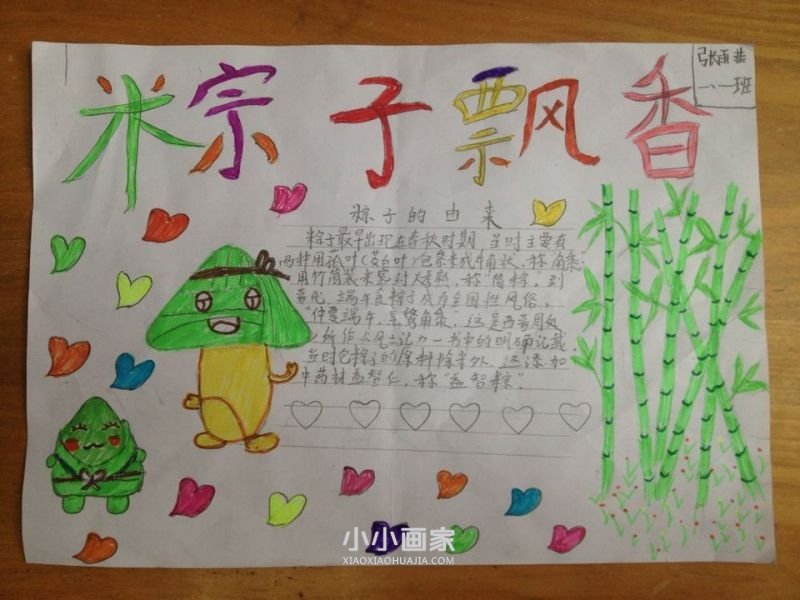 粽子飘香
张雨
一、一班
粽子的由来
粽子最早出现在春秋时期，当时主要有
两种用菰叶（茭白叶）包黍米成牛角状，称角黍
用竹筒装米密封烤熟，称“筒粽”。到
晋代，端午食粽子成为全国性风俗。
“仲夏端午，烹鹜角黍”，这是西晋周处
所作《风土记》一书中的明确记载
当时包粽子的原料除米外，还添加
中药材益智仁，称“益智粽”。
小小画家
XIAOXIAOHUAJIA.COM